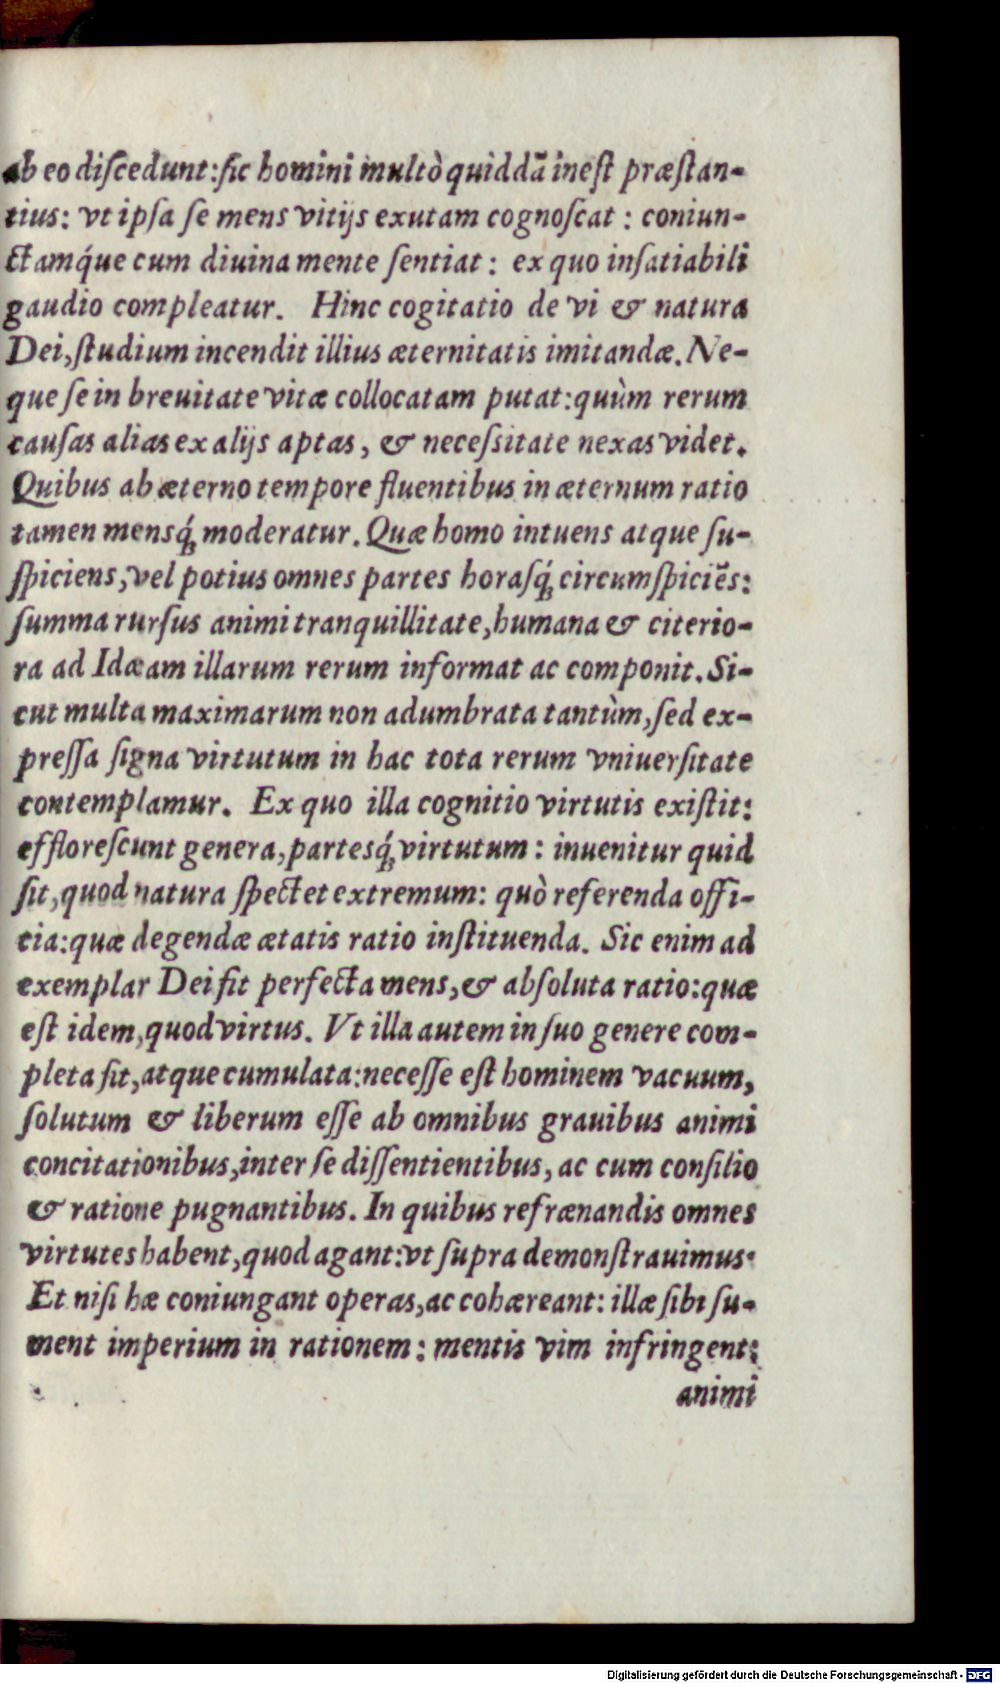 ab eo diſcedunt:ſic homini multò quiddā ineſt præſtan-
tius: vt ipſa ſe mens vitijs exutam cognoſcat : coniun-
ctamq́ue cum diuina mente ſentiat: ex quo inſatiabili
gaudio compleatur. Hinc cogitatio de vi & natura
Dei,ſtudium incendit illius æternitatis imitandæ. Ne-
que ſe in breuitate vitæ collocatam putat:quùm rerum
cauſas alias ex alijs aptas, & neceſsitate nexas videt.
Quibus ab æterno tempore fluentibus in æternum ratio
tamen mensq́; moderatur. Quæ homo intuens atque ſu-
ſpiciens,vel potius omnes partes horaſq́; circumſpiciēs:
ſumma rurſus animi tranquillitate,humana & citerio-
ra ad Idæam illarum rerum informat ac componit. Si-
cut multa maximarum non adumbrata tantùm,ſed ex-
preſſa ſigna virtutum in hac tota rerum vniuerſitate
contemplamur. Ex quo illa cognitio virtutis exiſtit:
effloreſcunt genera,partesq́; virtutum : inuenitur quid
ſit,quod natura ſpectet extremum: quò referenda offi-
cia:quæ degendæ ætatis ratio inſtituenda. Sic enim ad
exemplar Dei fit perfecta mens,& abſoluta ratio:quæ
eſt idem,quod virtus. Vt illa autem in ſuo genere com-
pleta ſit,atque cumulata:neceſſe eſt hominem vacuum,
ſolutum & liberum eſſe ab omnibus grauibus animi
concitationibus,inter ſe diſſentientibus, ac cum conſilio
& ratione pugnantibus. In quibus refrænandis omnes
virtutes habent,quod agant:vt ſupra demonſtrauimus.
Et niſi hæ coniungant operas,ac cohæreant: illæ ſibi ſu-
ment imperium in rationem : mentis vim infringent:
animi
Digitalisierung gefördert durch die Deutsche Forschungsgemeinschaft - DFG